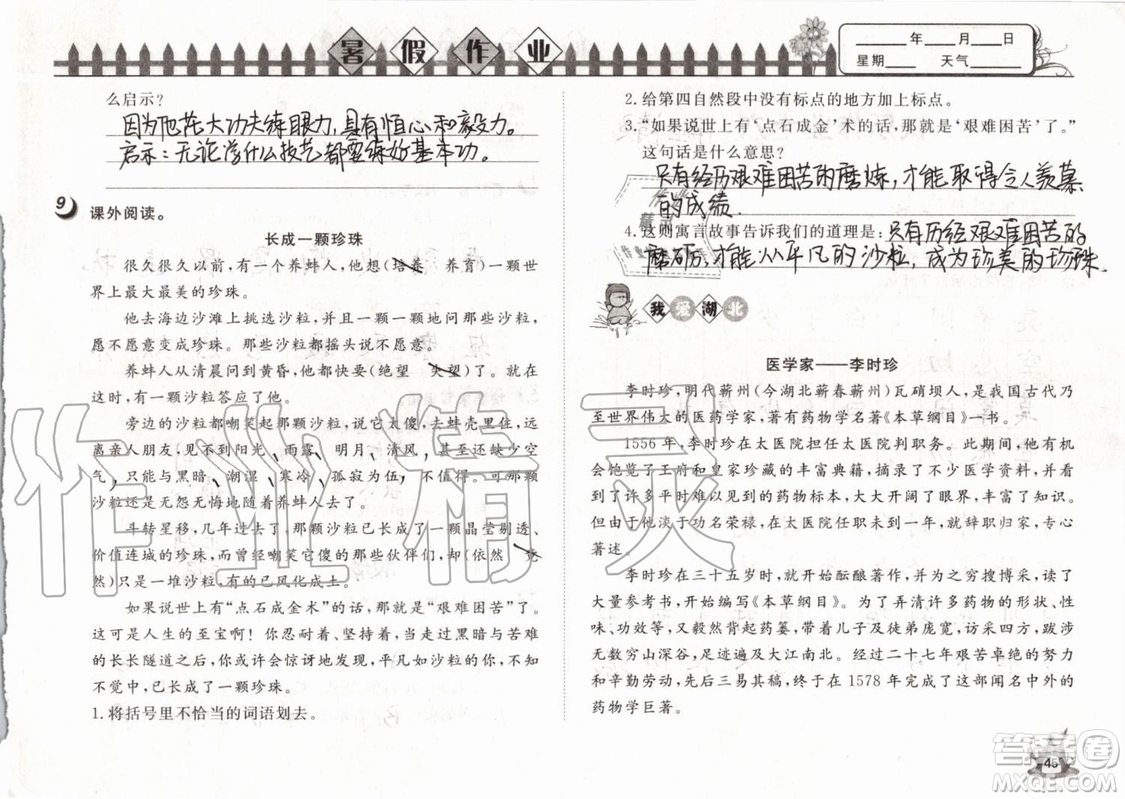 暑假作业
____年____月____日
星期____ 天气____
么启示?
因为他花大功夫练眼力,具有恒心和毅力。
启示:无论学什么技艺都要练好基本功。
9 课外阅读。
长成一颗珍珠
很久很久以前,有一个养蚌人,他想(培养 养育)一颗世
界上最大最美的珍珠。
他去海边沙滩上挑选沙粒,并且一颗一颗地问那些沙粒,
愿不愿意变成珍珠。那些沙粒都摇头说不愿意。
养蚌人从清晨问到黄昏,他都快要(绝望 失望)了。就
在这时,有一颗沙粒答应了他。
旁边的沙粒都嘲笑起那颗沙粒,说它太傻,去蚌壳里住,
远离亲人朋友,见不到阳光、雨露、明月、清风,甚至还缺少空
气,只能与黑暗、潮湿、寒冷、孤寂为伍,不值得。可那颗
沙粒还是无怨无悔地随着养蚌人去了。
斗转星移,几年过去了,那颗沙粒已长成了一颗晶莹剔透、
价值连城的珍珠,而曾经嘲笑它傻的那些伙伴们,却(依然
只是一堆沙粒,有的已风化成土。
如果说世上有“点石成金术”的话,那就是“艰难困苦”了。
这可是人生的至宝啊!你忍耐着、坚持着,当走过黑暗与苦难
的长长隧道之后,你或许会惊讶地发现,平凡如沙粒的你,不知
不觉中,已长成了一颗珍珠。
1.将括号里不恰当的词语划去。
2.给第四自然段中没有标点的地方加上标点。
3.“如果说世上有‘点石成金’术的话,那就是‘艰难困苦’了。”
这句话是什么意思?
只有经历艰难困苦的磨炼,才能取得令人羡慕
的成绩.
4.这则寓言故事告诉我们的道理是:只有历经艰难困苦的
磨砺,才能从平凡的沙粒,成为珍美的珍珠.
我爱湖北
医学家——李时珍
李时珍,明代蕲州(今湖北蕲春蕲州)瓦硝坝人,是我国古代乃
至世界伟大的医药学家,著有药物学名著《本草纲目》一书。
1556年,李时珍在太医院担任太医院判职务。此期间,他有机
会饱览了王府和皇家珍藏的丰富典籍,摘录了不少医学资料,并看到
了许多平时难以见到的药物标本,大大开阔了眼界,丰富了知识领域。
但由于他淡于功名荣禄,在太医院任职未到一年,就辞职归家,专心
著述。
李时珍在三十五岁时,开始酝酿著作,并为之穷搜博采,阅读了
大量参考书,开始编写《本草纲目》。为了弄清许多药物的形状、性
味、功效等,又毅然背起药篓,带着儿子及徒弟庞宽,访采四方,跋涉
无数穷山深谷,足迹遍及大江南北。经过二十七年艰苦卓绝的努力
和辛勤劳动,先后三易其稿,终于在1578年完成了这部闻名中外的
药物学巨著。
45
作业精灵
答案圈
MXQE.COM